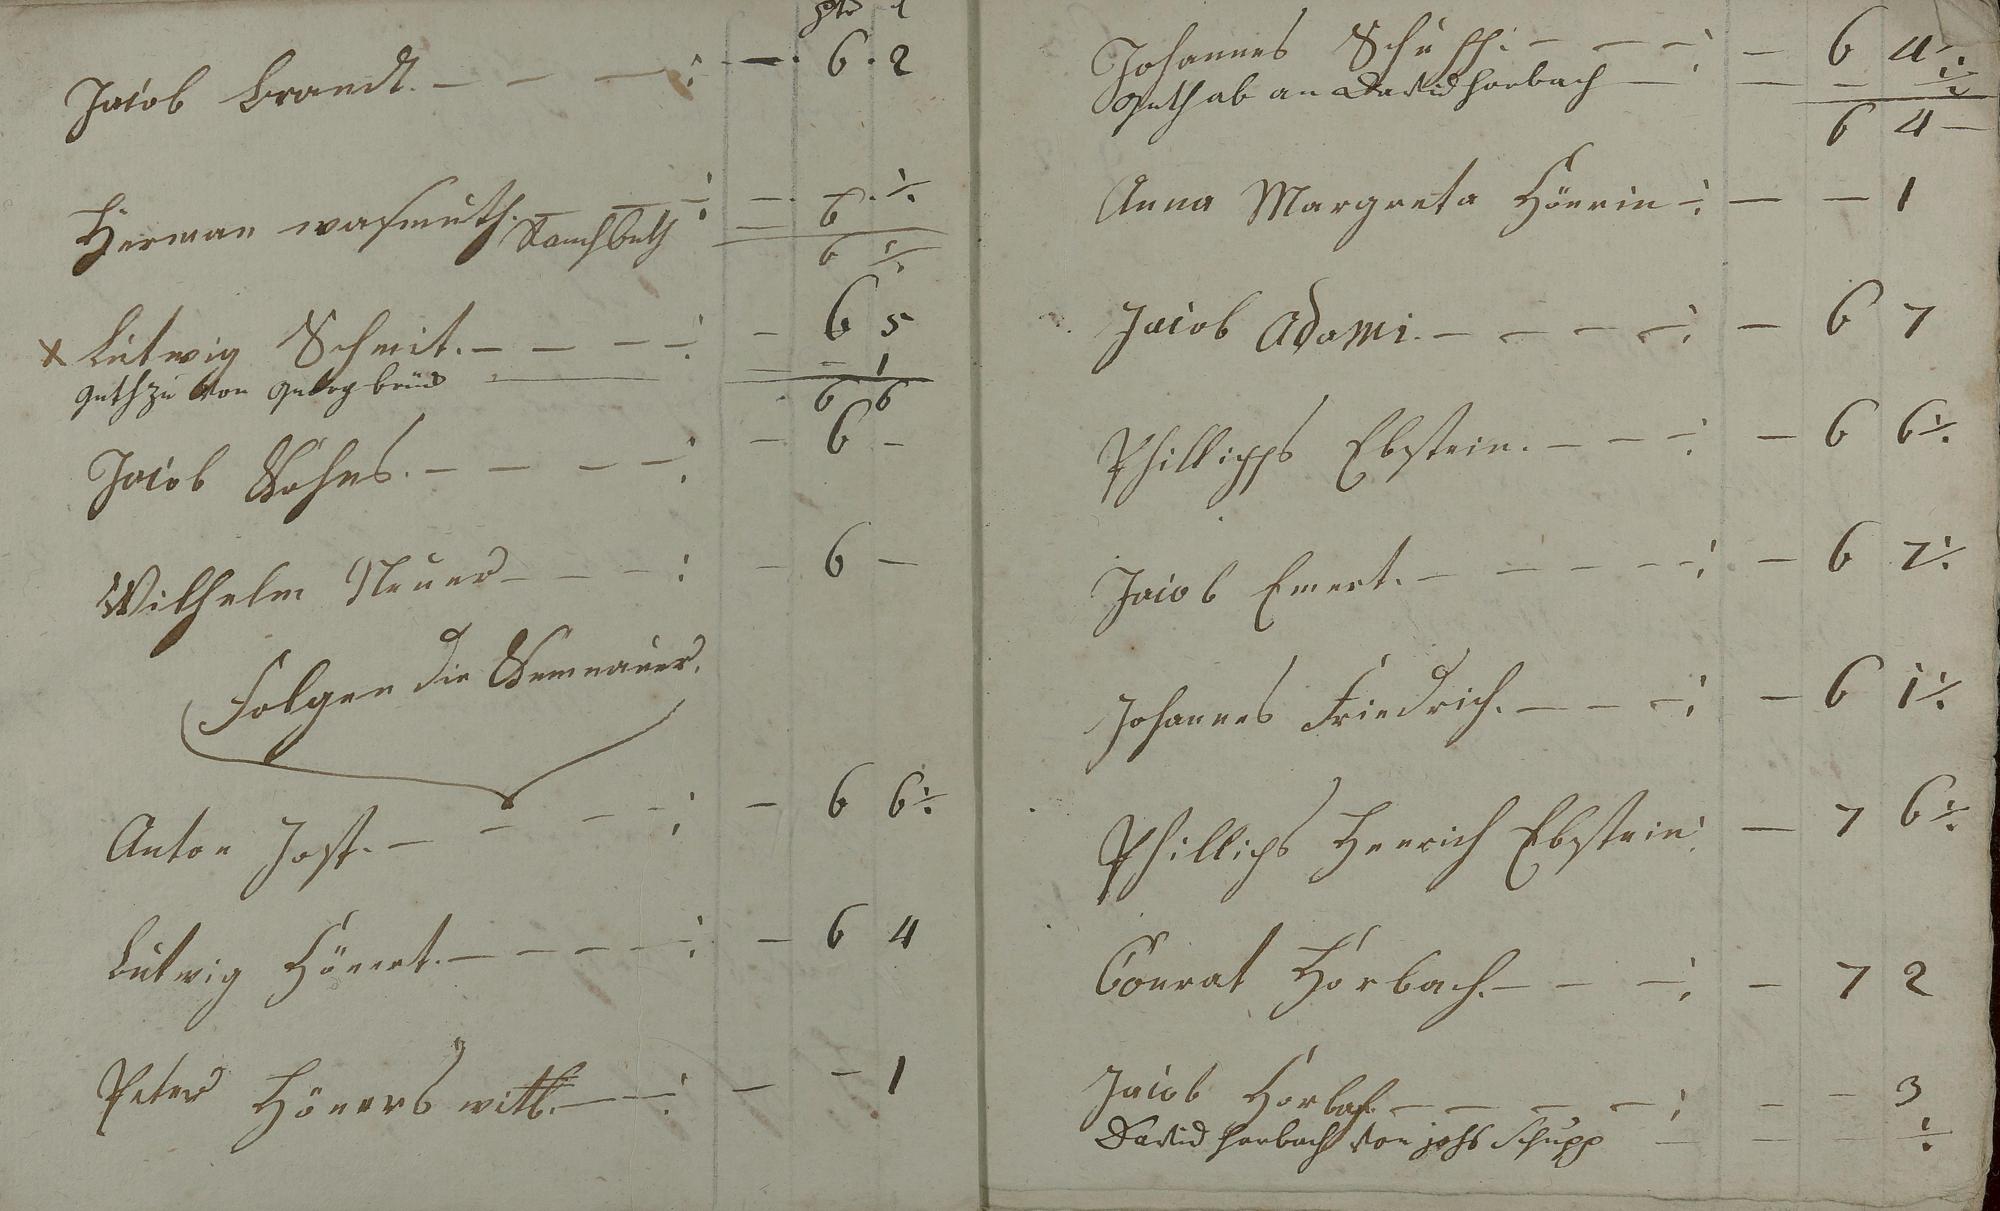 Jacob Brandt. — — — : — . 6 . 2
Herman wasmuth. — — : — . 6 . ½
— 6
6 ½
x Lutwig Schmit. — — — — : — 6 5
guth zu von Georg — — 1
6 6
Jacob Sohns. — — — — : — 6 —
Wilhelm Neuer — — — : — 6 —
Folgen die
Anton Jost. — — — — : — 6 6½
Lutwig Hönert. — — — — : — 6 4
Peter Höners witb. — — : — — 1
Johannes Schupp. — — — : — 6 4½
guth ab an David Horbach — — — ½
6 4 —
Anna Margreta Hönrin — : — — 1
Jacob Adami. — — — — : — 6 7
Phillipps Ebstein. — — — : — 6 6½
Jacob Emert. — — — — — : — 6 7½
Johannes Friedrich. — — — : — 6 1½
Phillips Henrich Ebstein : — 7 6½
Conrat Horbach. — — — : — 7 2
Jacob Horbach — — — — : — — 3
David Horbach von Johs Schupp — — — ½